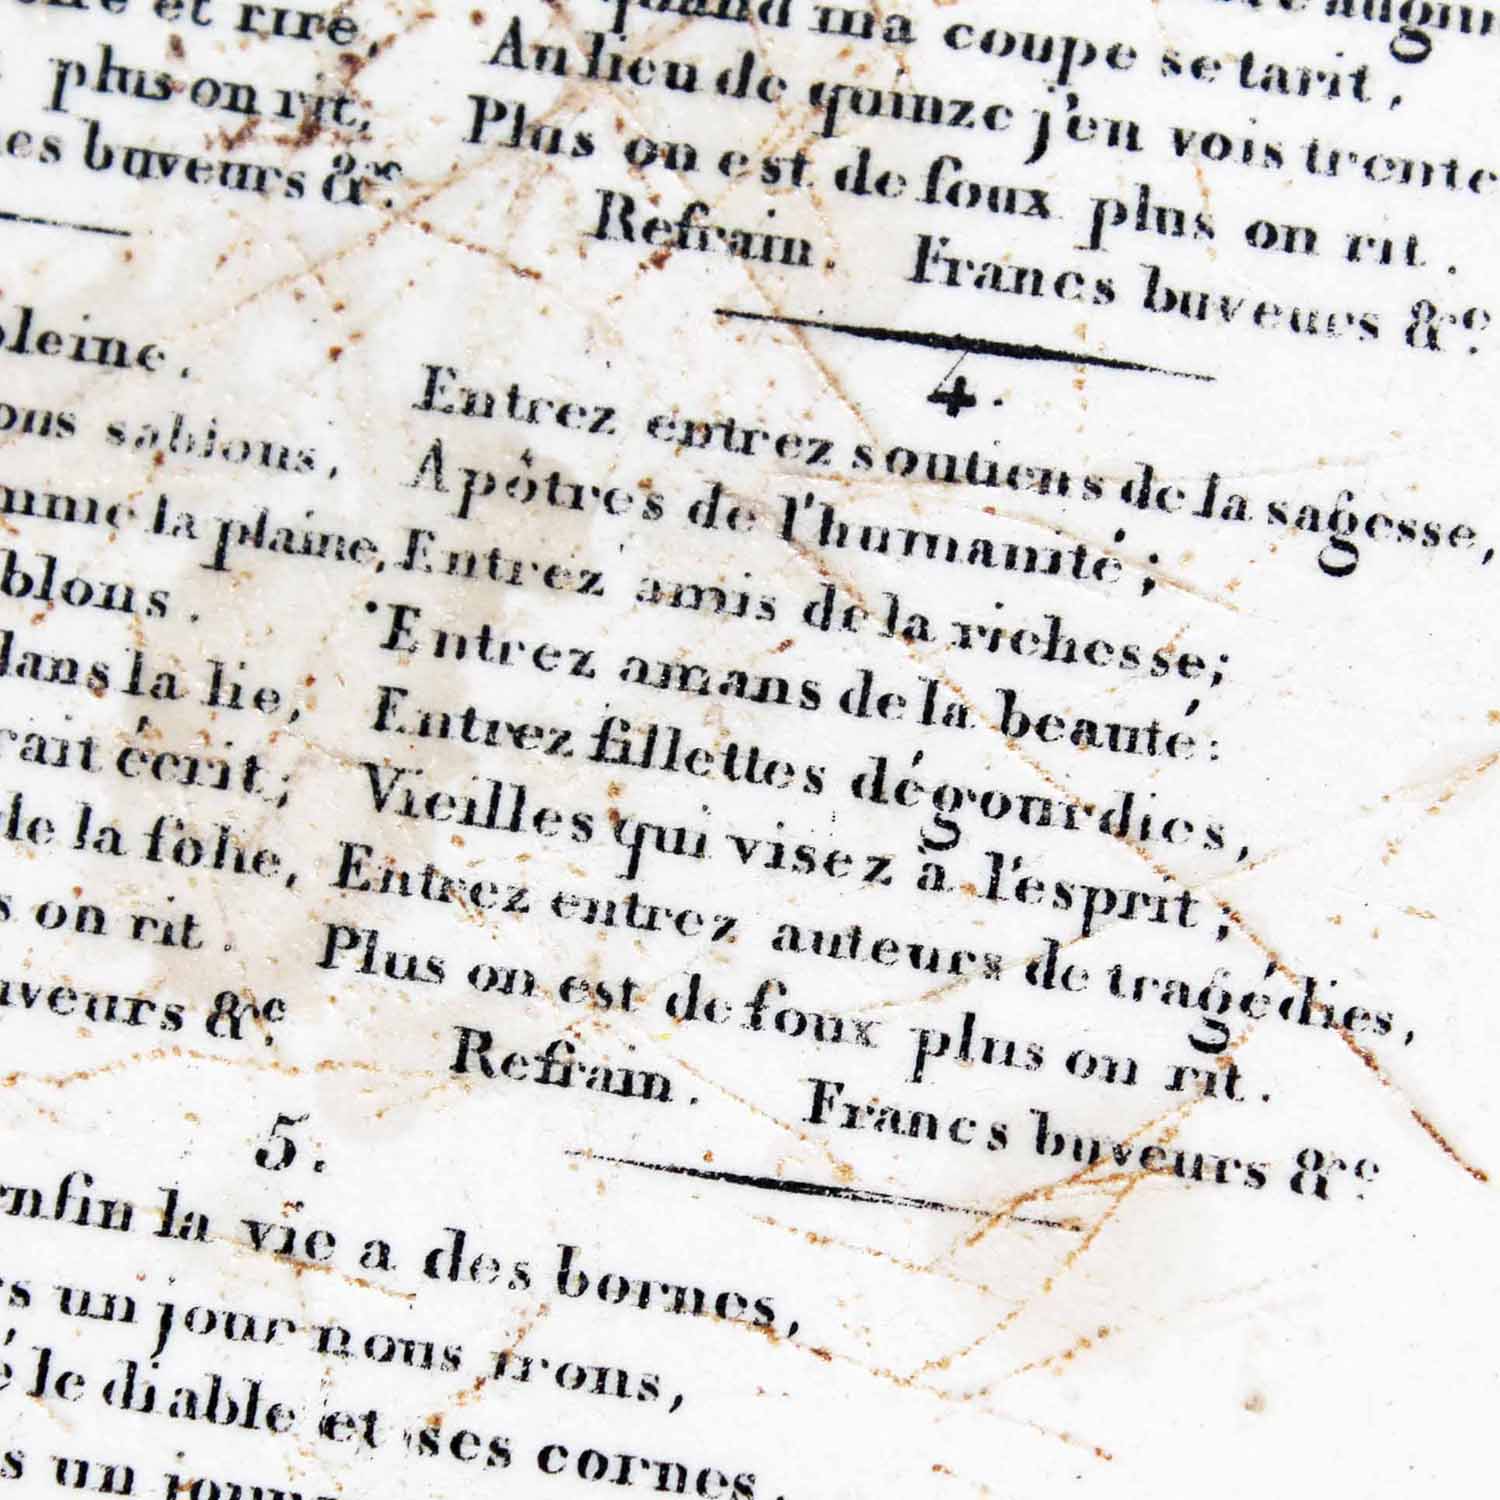 et rire,
plus on rit,
buveurs &c.
pleine.
sablons,
la plaine,
blons.
dans la lie,
rait écrit;
de la folie,
on rit.
buveurs &c.
quand ma coupe se tarit,
Au lieu de quinze j'en vois trente
Plus on est de foux plus on rit.
Refrain. Francs buveurs &c.
4.
Entrez entrez soutiens de la sagesse,
Apôtres de l'humanité;
Entrez amis de la richesse;
Entrez amans de la beauté:
Entrez fillettes dégourdies,
Vieilles qui visez à l'esprit;
Entrez entrez auteurs de tragédies,
Plus on est de foux plus on rit.
Refrain. Francs buveurs &c.
5.
enfin la vie a des bornes,
un jour nous irons,
le diable et ses cornes,
un